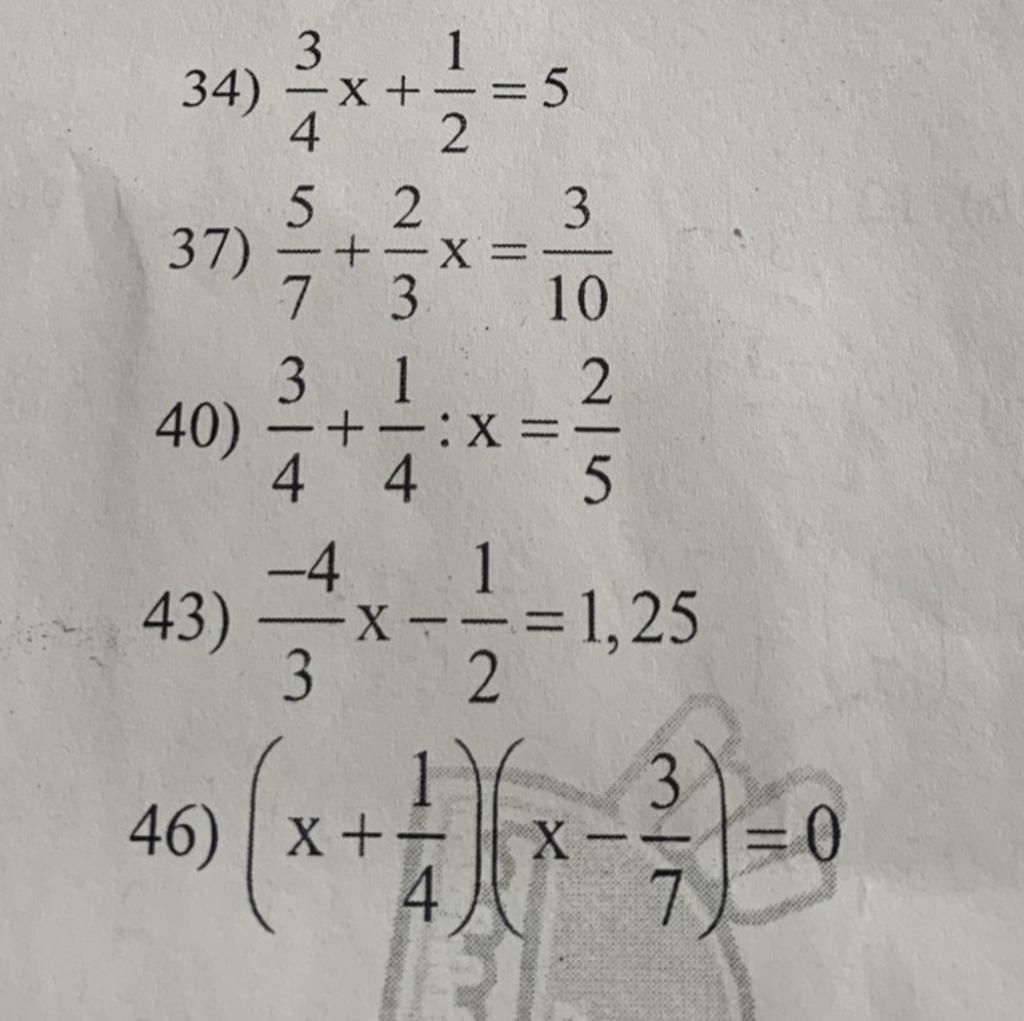 34) 3/4 x + 1/2 = 5
37) 5/7 + 2/3 x = 3/10
40) 3/4 + 1/4 : x = 2/5
43) -4/3 x - 1/2 = 1,25
46) (x + 1/4)(x - 3/7) = 0